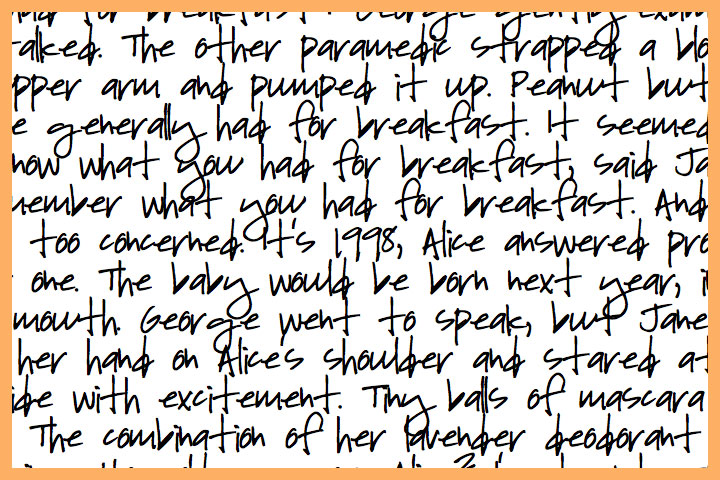 had for breakfast. George gently
talked. The other paramedic strapped a
upper arm and pumped it up. Peanut
generally had for breakfast. It seemed
know what you had for breakfast, said
remember what you had for breakfast. And
too concerned. It's 1998, Alice answered
one. The baby would be born next year,
mouth. George went to speak, but Jane
her hand on Alice's shoulder and stared
with excitement. Tiny balls of mascara
The combination of her lavender deodorant